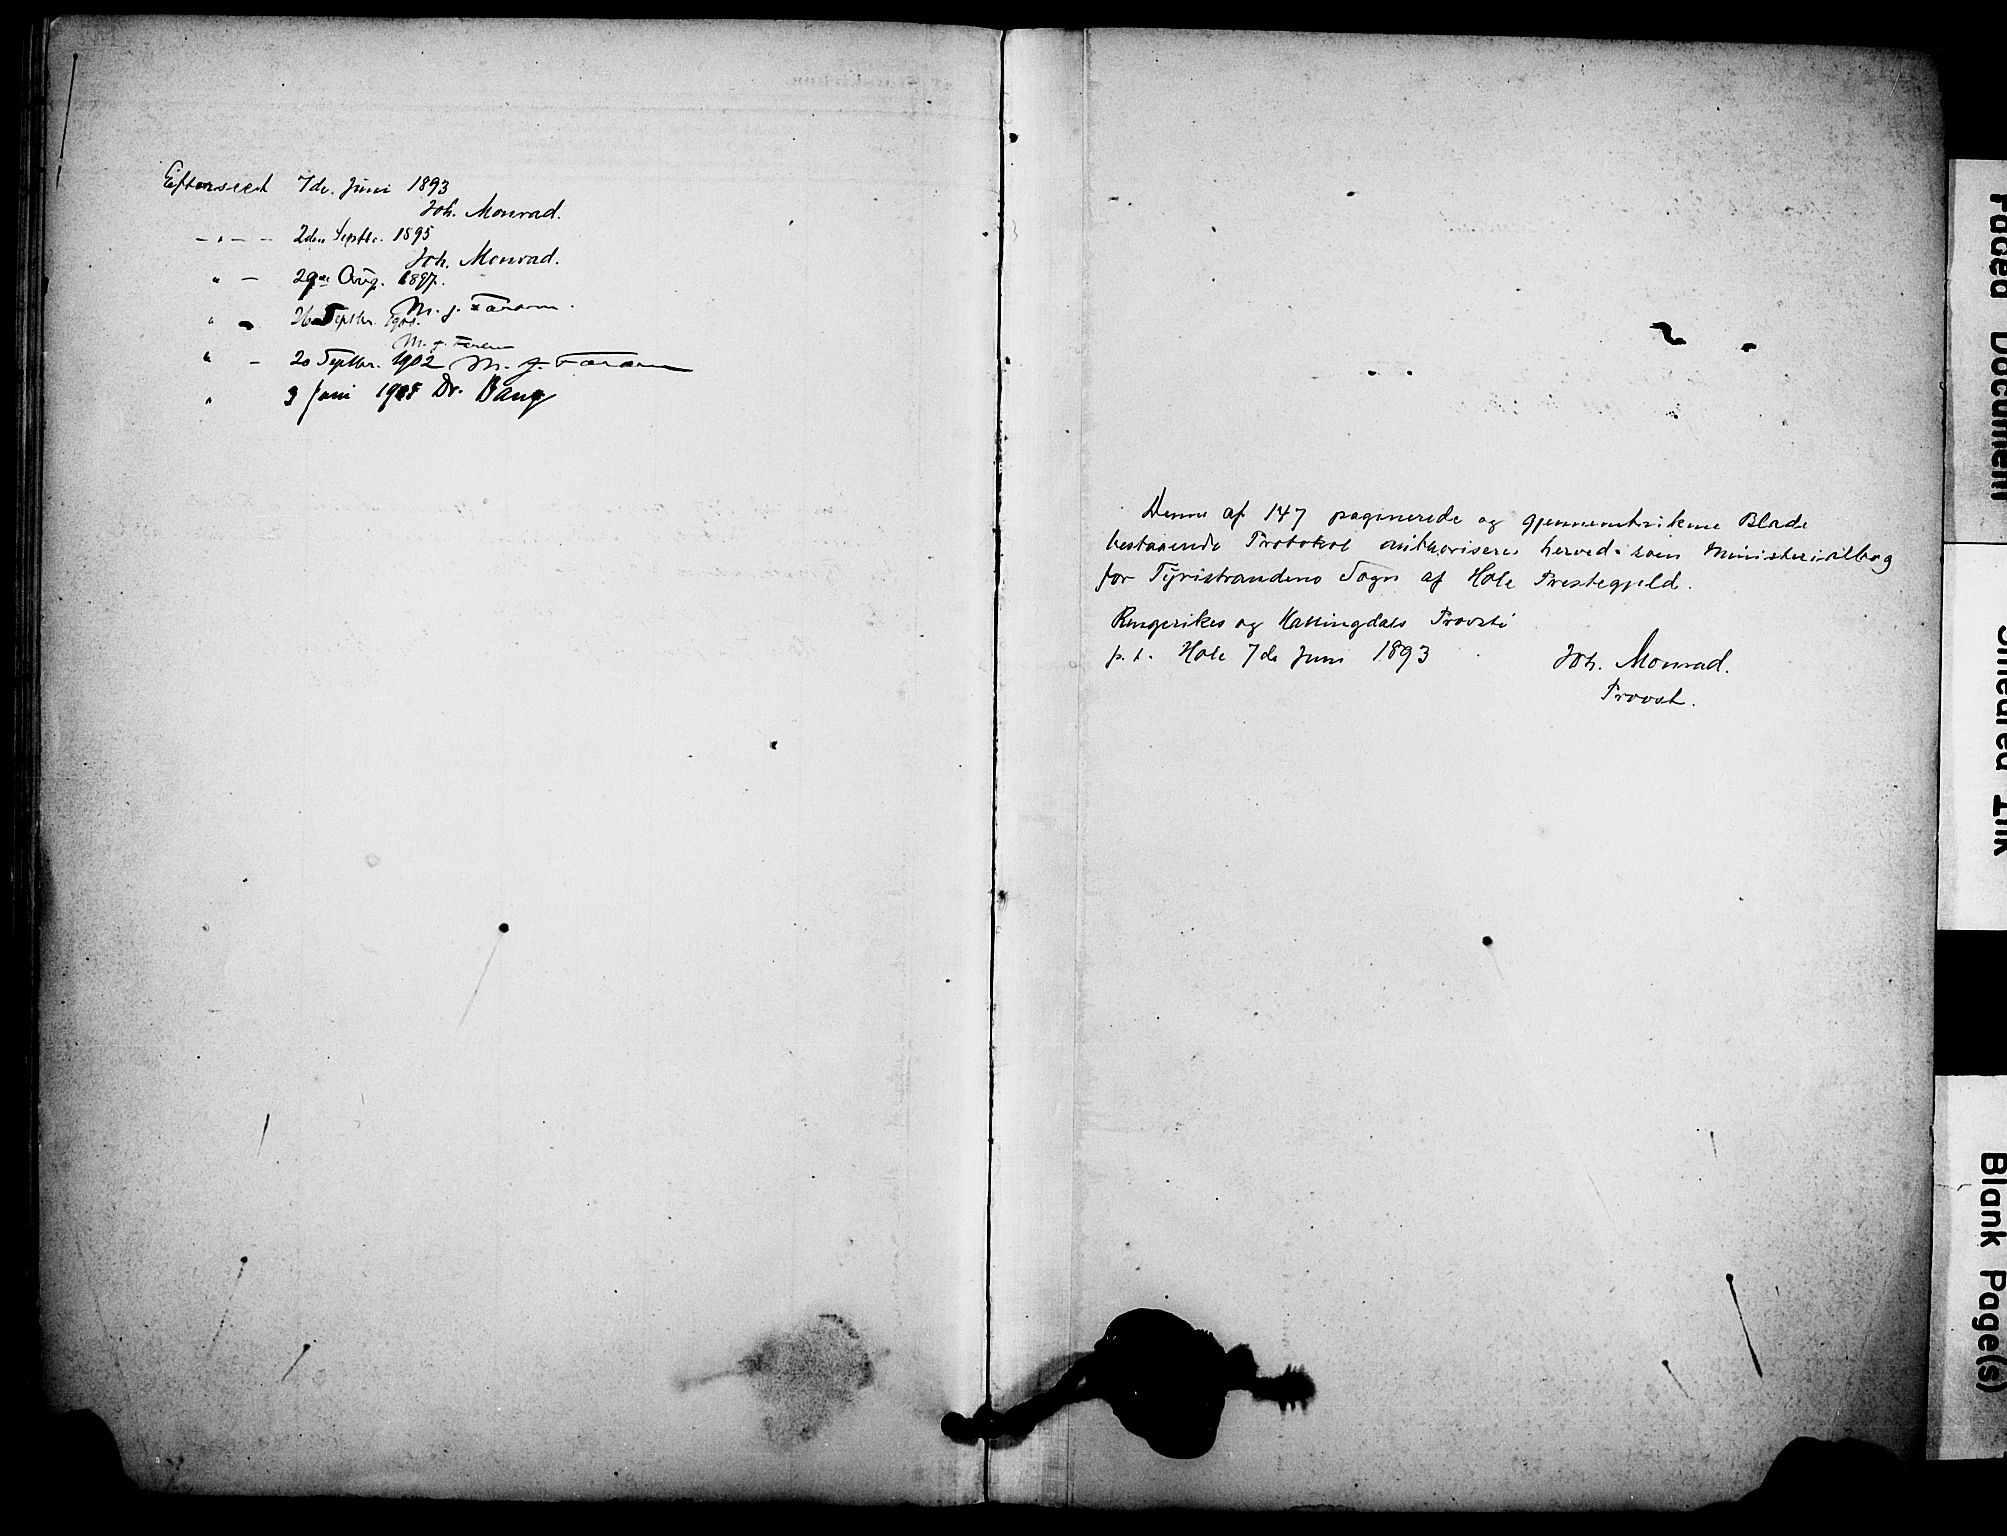 Efterseet 7de Juni 1893
Joh. Monrad.
– " – – 2den Septbr. 1895
Joh. Monrad.
" – 29de Aug. 1897.
M. J. Færden.
" – 26 Septbr. 1901.
M. J. Færden
" – 20 Septbr. 1902 M. J. Færden
" 3 Juni 1908 Dr. Bang
Denne af 147 paginerede og gjennemtrukne Blade
bestaaende Protokol authoriseres herved som Ministerialbog
for Tyristrandens Sogn af Hole Præstegjeld.
Ringerikes og Hallingdals Provsti
p. t. Hole 7de Juni 1893
Joh. Monrad.
Provst.
Faded Document
Smeared Ink
Blank Page(s)